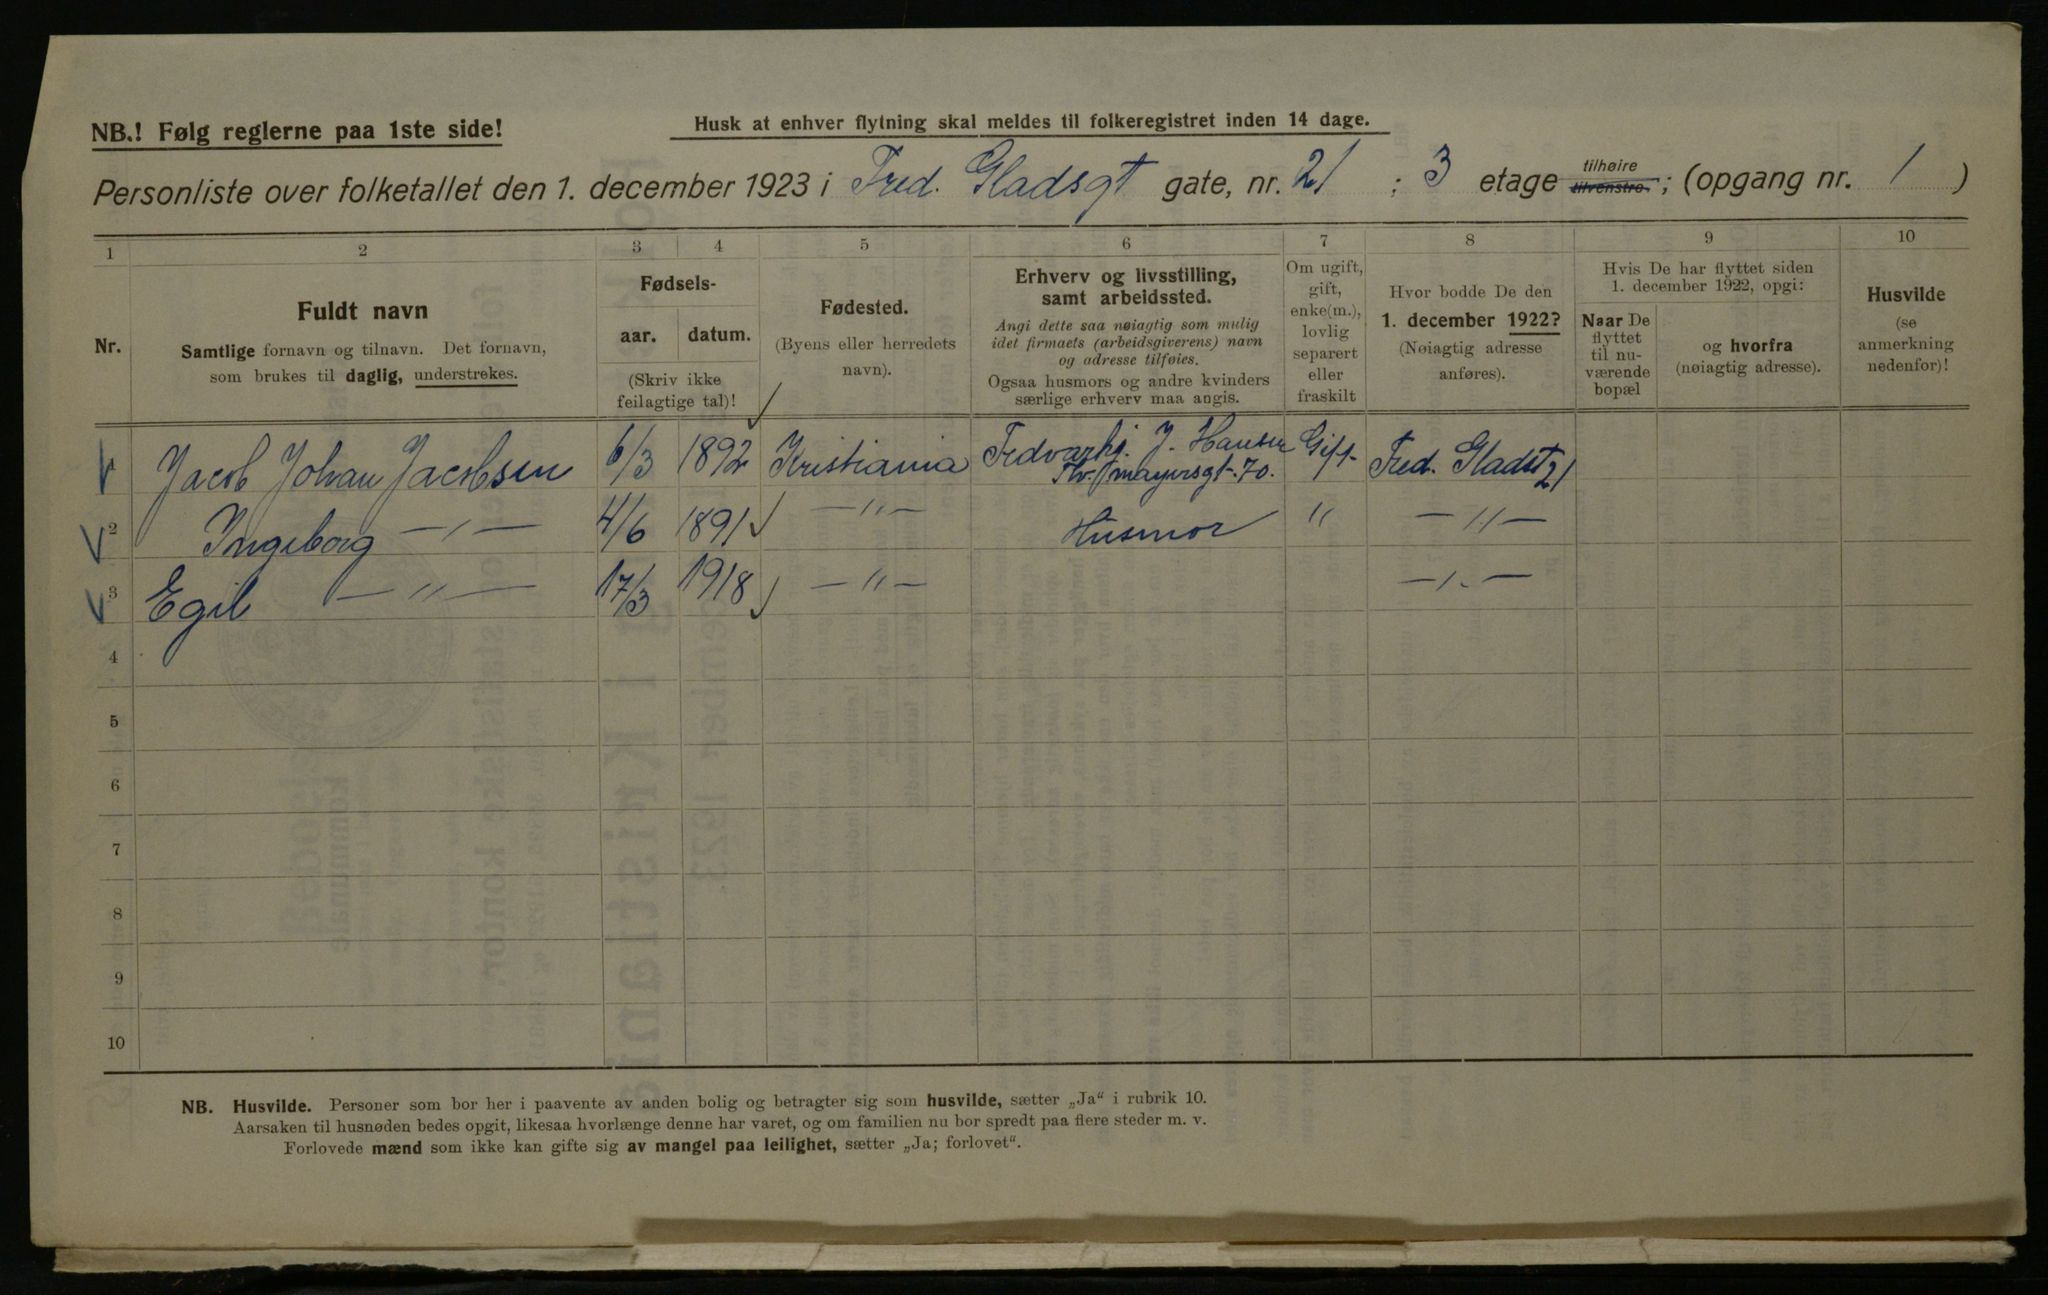 NB.! Følg reglerne paa 1ste side!
Husk at enhver flytning skal meldes til folkeregistret inden 14 dage.
Personliste over folketallet den 1. december 1923 i Fred. Gladsgt gate, nr. 21 ; 3 etage tilhøire tilvenstre. ; (opgang nr. 1 )
1 2 3 4 5 6 7 8 9 10
Nr.
Fuldt navn
Samtlige fornavn og tilnavn. Det fornavn,
som brukes til daglig, understrekes.
Fødsels-
aar. datum.
(Skriv ikke
feilagtige tal)!
Fødested.
(Byens eller herredets
navn).
Erhverv og livsstilling,
samt arbeidssted.
Angi dette saa nøiagtig som mulig
idet firmaets (arbeidsgiverens) navn
og adresse tilføies.
Ogsaa husmors og andre kvinders
særlige erhverv maa angis.
Om ugift,
gift,
enke(m.),
lovlig
separert
eller
fraskilt
Hvor bodde De den
1. december 1922?
(Nøiagtig adresse
anføres).
Hvis De har flyttet siden
1. december 1922, opgi:
Naar De
flyttet
til nu-
værende
bopæl
og hvorfra
(nøiagtig adresse).
Husvilde
(se
anmerkning
nedenfor)!
1 Jacob Johan Jacobsen 6/3 1892 Kristiania J. Hansen Gift Fred. Gladst 21
Thv. mayersgt. 70.
2 Ingeborg —„— 4/6 1891 —„— Husmor „ —„—
3 Egil —„— 17/3 1918 —„— —„—
4
5
6
7
8
9
10
NB. Husvilde. Personer som bor her i paavente av anden bolig og betragter sig som husvilde, sætter „Ja“ i rubrik 10.
Aarsaken til husnøden bedes opgit, likesaa hvorlænge denne har varet, og om familien nu bor spredt paa flere steder m. v.
Forlovede mænd som ikke kan gifte sig av mangel paa leilighet, sætter „Ja; forlovet“.